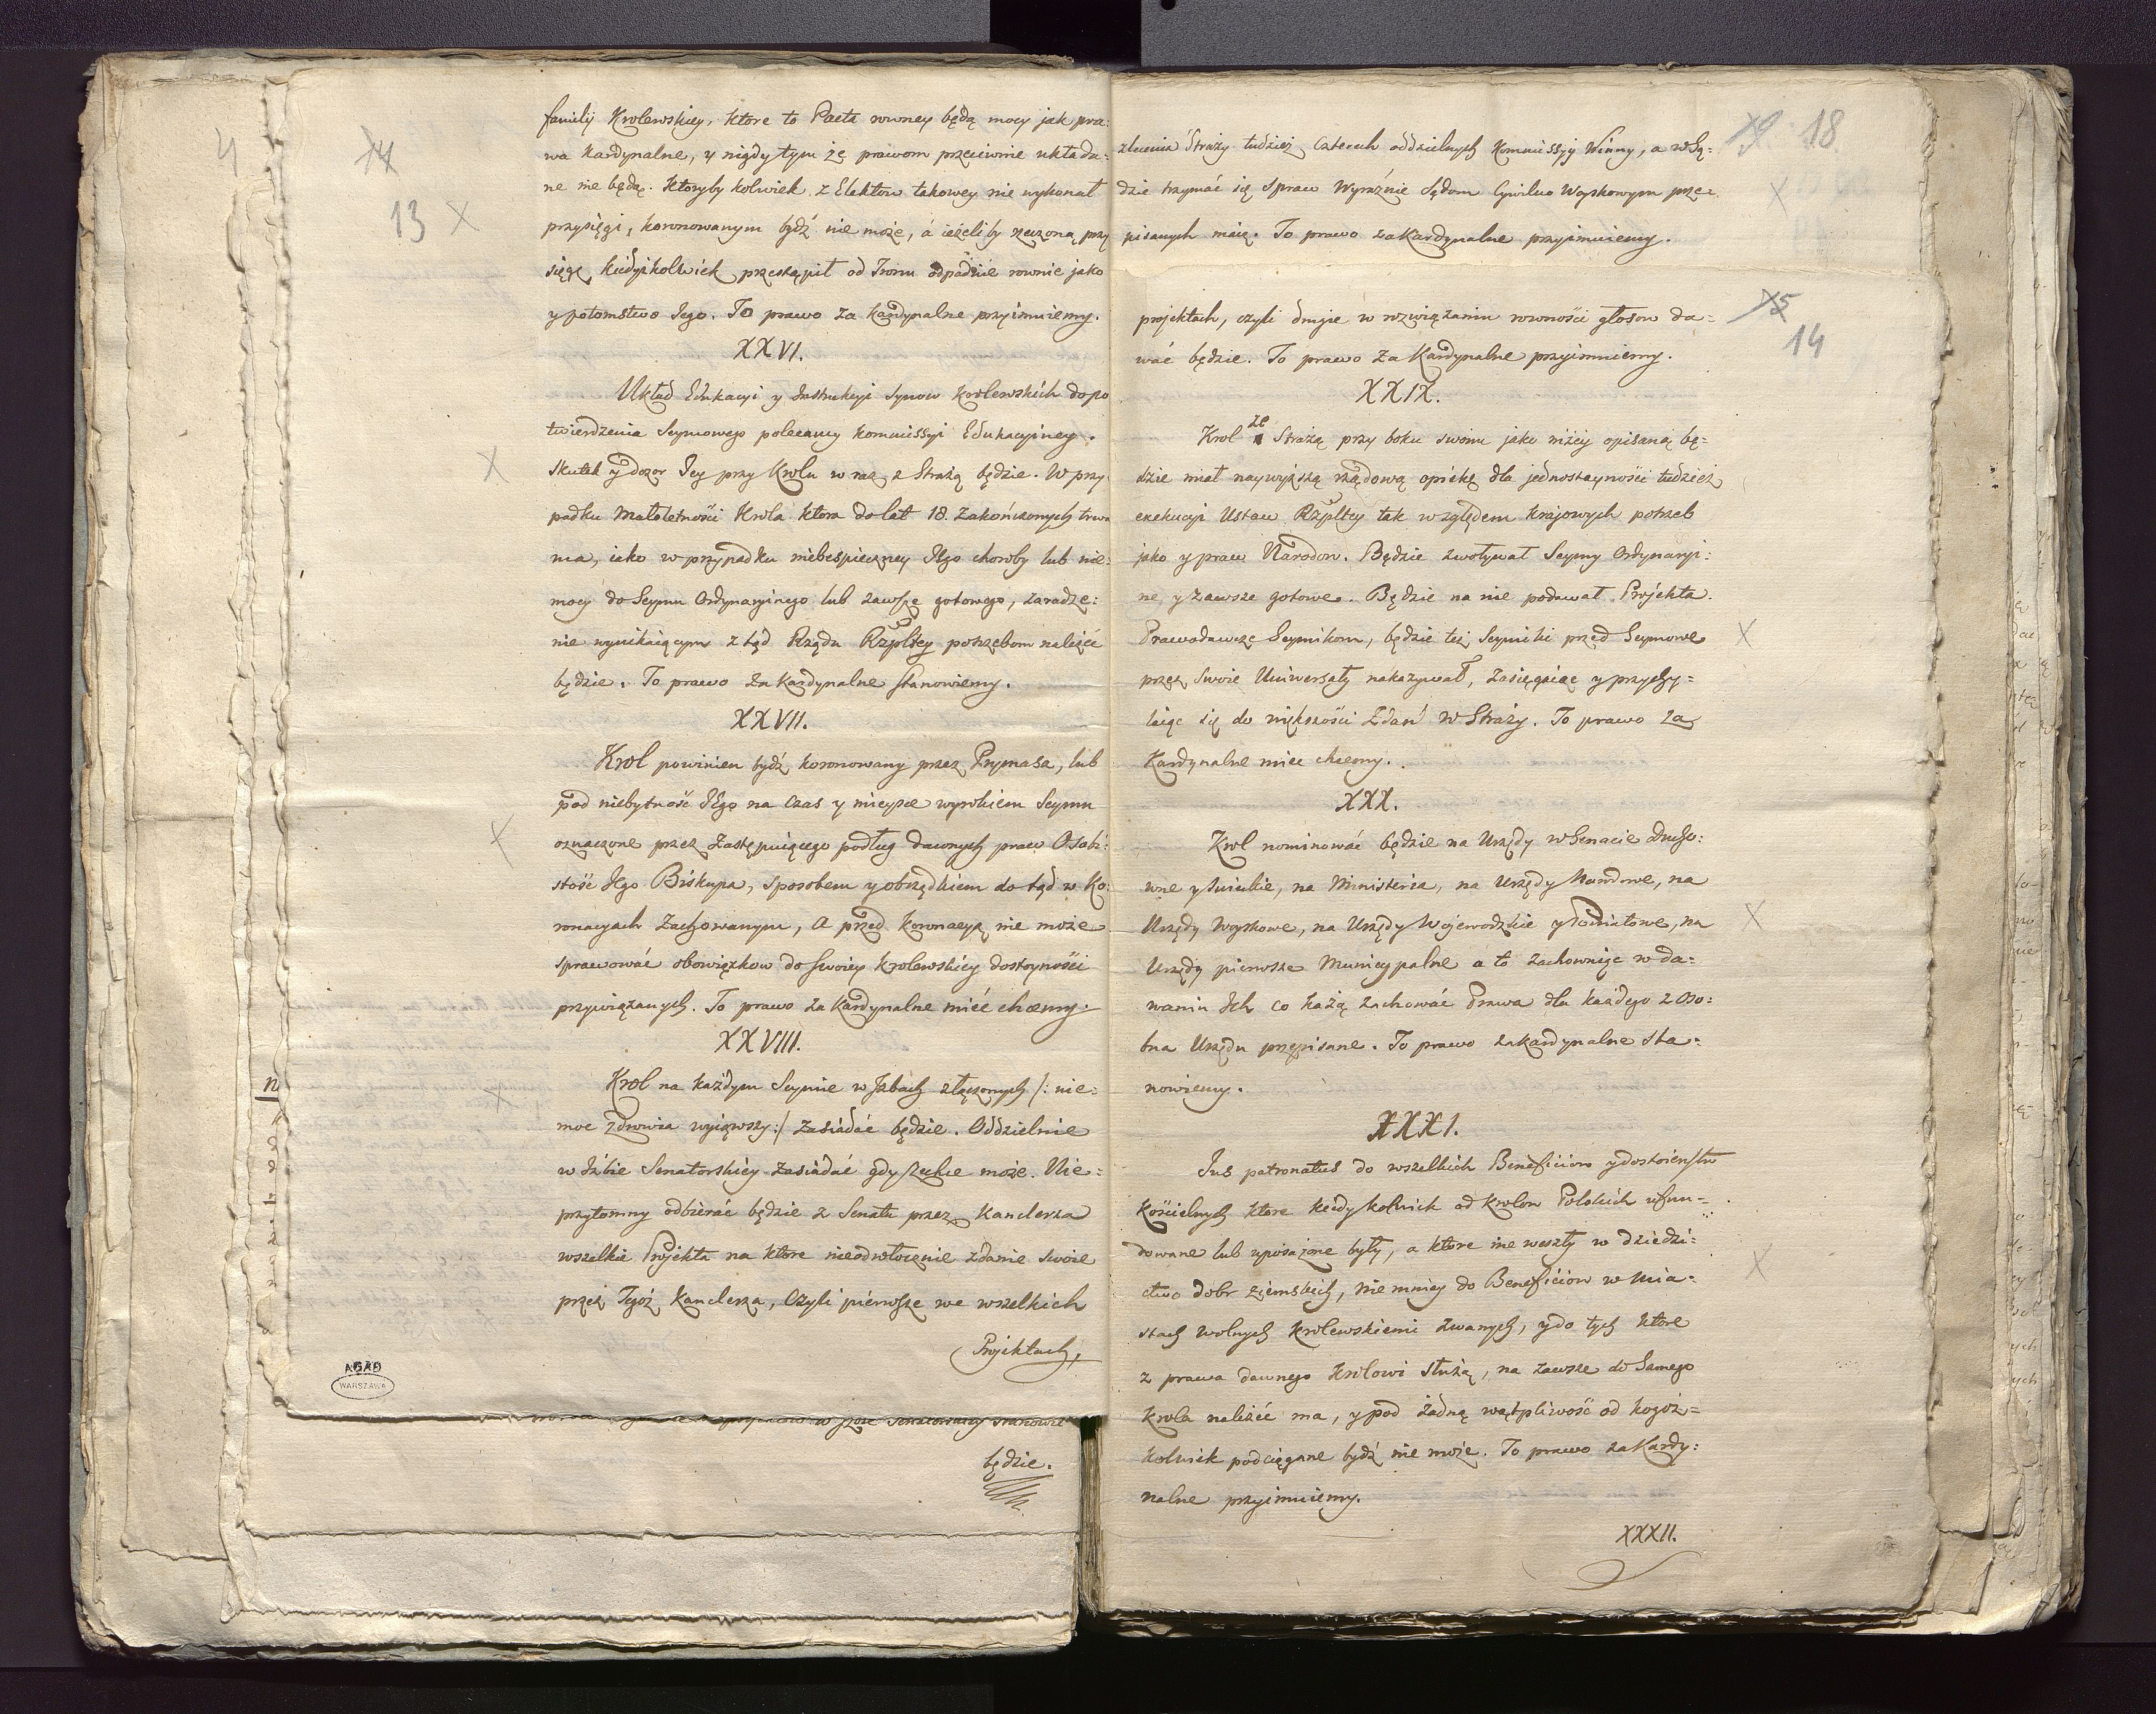 14
13 X
familij Krolewskiey, ktore to Pacta rowney będą mocy jak pra:
wa kardynalne, y nigdy tym że prawom przeciwne układa:
ne nie będą. Ktoryby kolwiek z Elektow takowey nie wykonał
przysięgi, koronowanym bydź nie może, á ieżeliby rzeczoną przy
sięgę kiedyżkolwiek przestąpił od Tronu odpadnie rownie jako
y potomstwo Jego. To prawo za kardynalne przyimuiemy.
XXVI.
Układ Edukacyi y Instrukcyi Synow Krolewskich do po
twierdzenia Seymowego polecamy Kommissyi Edukacyiney.
Skutek y dozor Jey przy Krolu wraz z Strażą będzie. W przy
padku Małoletności Krola ktora do lat 18. zakończonych trwa
ma, iako w przypadku niebespieczney Jego choroby lub nie:
mocy do Seymu Ordynaryinego lub zawsze gotowego, zaradze:
nie wynikaiącym z tąd Rządu Rzpltey potrzebom należeć
będzie. To prawo za Kardynalne stanowiemy.
XXVII.
Krol powinien bydź koronowany przez Prymasa, lub
pod niebytność Jego na czas y mieysce wyrokiem Seymu
oznaczone przez Zastępuiącego podług dawnych praw Osobi:
stość Jego Biskupa, sposobem y obrządkiem do tąd w Ko:
ronacyach zachowanym, a przed koronacyą nie może
sprawować obowiązkow do swoiey Krolewskiey dostoyności
przywiązanych. To prawo za Kardynalne mieć chcemy.
XXVIII.
Krol na każdym Seymie w Izbach złączonych /: nie=
moc zdrowia wyiąwszy :/ zasiadać będzie. Oddzielnie
w Izbie Senatorskiey zasiadać gdy zechce może. Nie=
przytomny odbierać będzie z Senatu przez Kanclerza
wszelkie Projekta na ktore nieodwłocznie zdanie swoie
przez Tegoż Kanclerza, czyli pierwsze we wszelkich
Projektach,
AGAD
WARSZAWA
będzie.
18
zlecenia Straży tudzież czterech oddzielnych Kommissyy Winny, a w Są=
dzie trzymać się spraw wyraźnie Sądom Cywilno Woyskowym prze=
pisanych maią. To prawo za Kardynalne przyimuiemy.
15
14
projektach, czyli drugie w rozwiązaniu rowności głosow da=
wać będzie. To prawo za Kardynalne przyimuiemy.
XXIX.
Krol ze Strażą przy boku swoim jako niżey opisaną bę=
dzie miał naywyższą rządową opiekę dla jednostayności tudzież
exekucyi Ustaw Rzpltey tak względem krajowych potrzeb
jako y praw Narodow. Będzie zwoływał Seymy Ordynaryi:
ne y zawsze gotowe. Będzie na nie podawał Projekta.
Prawodawcze Seymikom, będzie też Seymiki przed Seymowe
przez swoie Uniwersały nakazywał, zasięgaiąc y przychy=
laiąc się do większości Zdań w Straży. To prawo za
Kardynalne miec chcemy.
XXX.
Krol nominować będzie na Urzędy w Senacie Ducho:
wne y świeckie, na Ministeria, na Urzędy Narodowe, na
Urzędy Woyskowe, na Urzędy Wojewodzkie y Powiatowe, na
Urzędy pierwsze Municypalne a to zachowuiąc w da=
waniu Ich co każą zachować Prawa dla każdego z Oso:
bna Urzędu przepisane. To prawo za kardynalne sta=
nowiemy.
XXXI.
Jus patronatus do wszelkich Beneficiow y dostoieństw
Kościelnych ktore kiedykolwiek od Krolow Polskich ufun=
dowane lub uposażone były, a ktore nie weszły w dziedzi=
ctwo dobr ziemskich, nie mniey do Beneficiow w Mia=
stach wolnych Krolewskiemi zwanych, y do tych ktore
z prawa dawnego Krolowi służą, na zawsze do Samego
Krola należeć ma, y pod żadną wątpliwość od kogoż=
kolwiek podciągane bydź nie może. To prawo za Kardy:
nalne przyimuiemy.
XXXII.